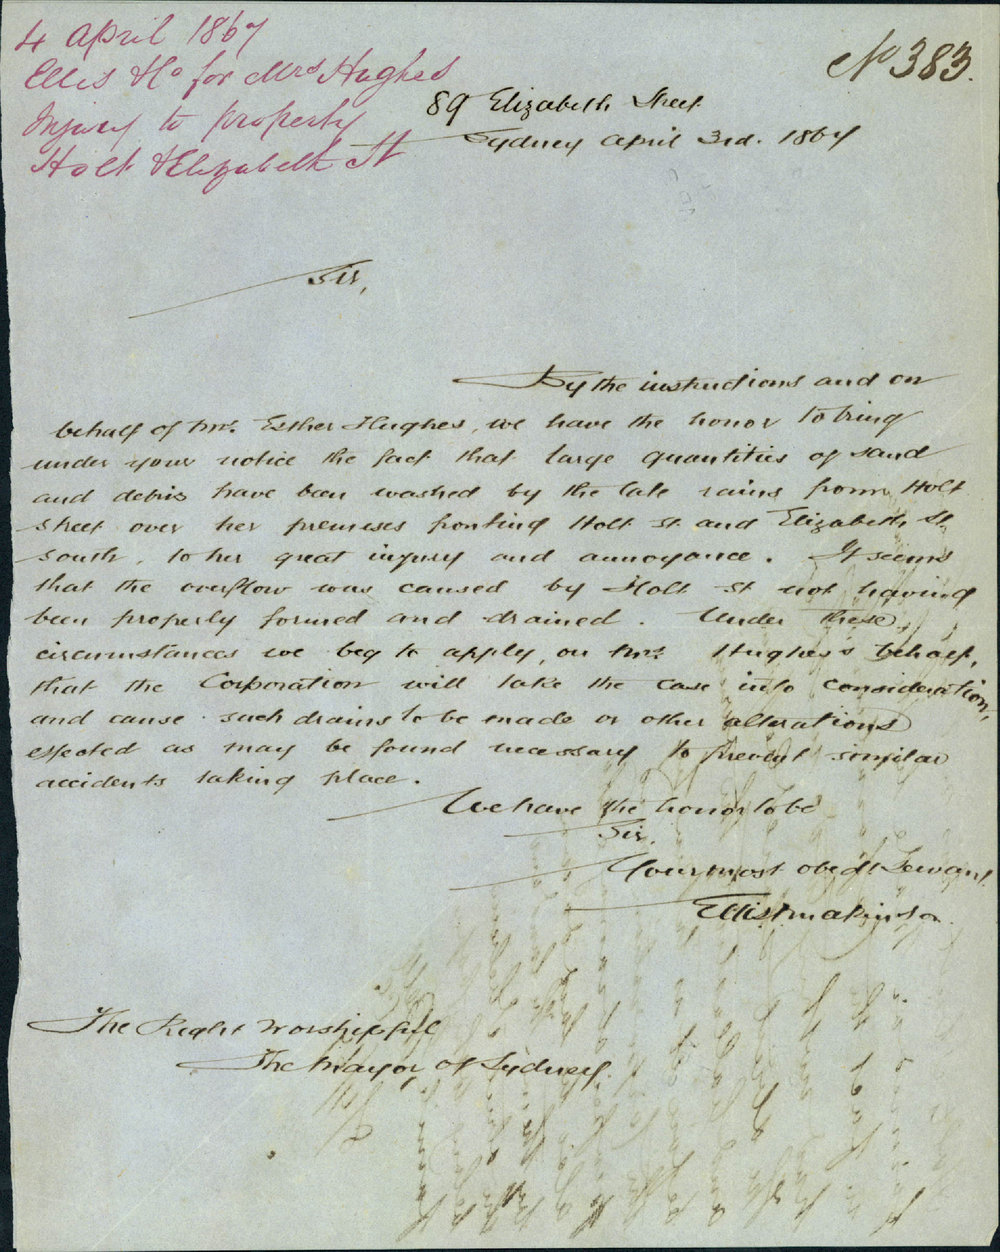 4 April 1867
Ellis & Co for Mrs Hughes
Injury to property
Holt & Elizabeth St
No 383.
89 Elizabeth Street
Sydney April 3rd. 1867
Sir,
By the instructions and on
behalf of Mrs. Esther Hughes, we have the honor to bring
under your notice the fact that large quantities of sand
and debris have been washed by the late rains from Holt
Street over her premises fronting Holt St and Elizabeth St
South, to her great injury and annoyance. It seems
that the overflow was caused by Holt St not having
been properly formed and drained. Under these
circumstances we beg to apply, on Mrs. Hughes's behalf,
that the Corporation will take the case into consideration,
and cause such drains to be made or other alterations
effected as may be found necessary to prevent similar
accidents taking place.
We have the honor to be
Sir.
Your most obedt Servant
Ellis & Makinson
The Right Worshipful
The Mayor of Sydney.